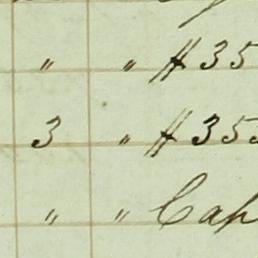 " " # 35
3 " # 355
" " Cap